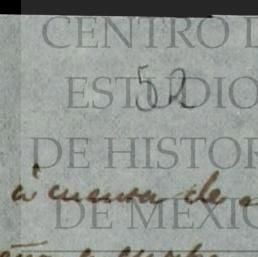 CENTRO D
52
ESTUDIO
DE HISTOR
á cuenta de
DE MEXIC